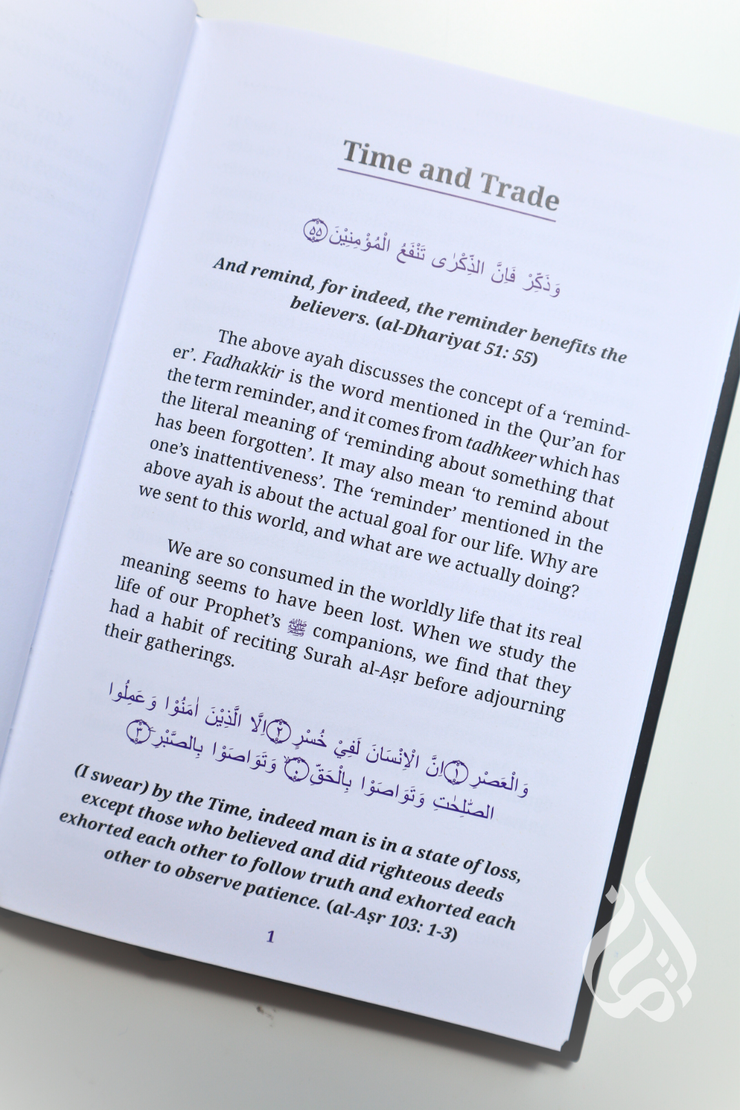 Time and Trade
وَذَكِّرْ فَاِنَّ الذِّكْرٰى تَنْفَعُ الْمُؤْمِنِيْنَ ۝٥٥
And remind, for indeed, the reminder benefits the
believers. (al-Dhariyat 51: 55)
The above ayah discusses the concept of a ‘remind-
er’. Fadhakkir is the word mentioned in the Qur’an for
the term reminder, and it comes from tadhkeer which has
the literal meaning of ‘reminding about something that
has been forgotten’. It may also mean ‘to remind about
one’s inattentiveness’. The ‘reminder’ mentioned in the
above ayah is about the actual goal for our life. Why are
we sent to this world, and what are we actually doing?
We are so consumed in the worldly life that its real
meaning seems to have been lost. When we study the
life of our Prophet’s ﷺ companions, we find that they
had a habit of reciting Surah al-Aṣr before adjourning
their gatherings.
وَالْعَصْرِ ۝١ اِنَّ الْاِنْسَانَ لَفِيْ خُسْرٍ ۝٢ اِلَّا الَّذِيْنَ اٰمَنُوْا وَعَمِلُوا
الصّٰلِحٰتِ وَتَوَاصَوْا بِالْحَقِّ ۝٠ وَتَوَاصَوْا بِالصَّبْرِ ۝٣
(I swear) by the Time, indeed man is in a state of loss,
except those who believed and did righteous deeds
exhorted each other to follow truth and exhorted each
other to observe patience. (al-Aṣr 103: 1-3)
1